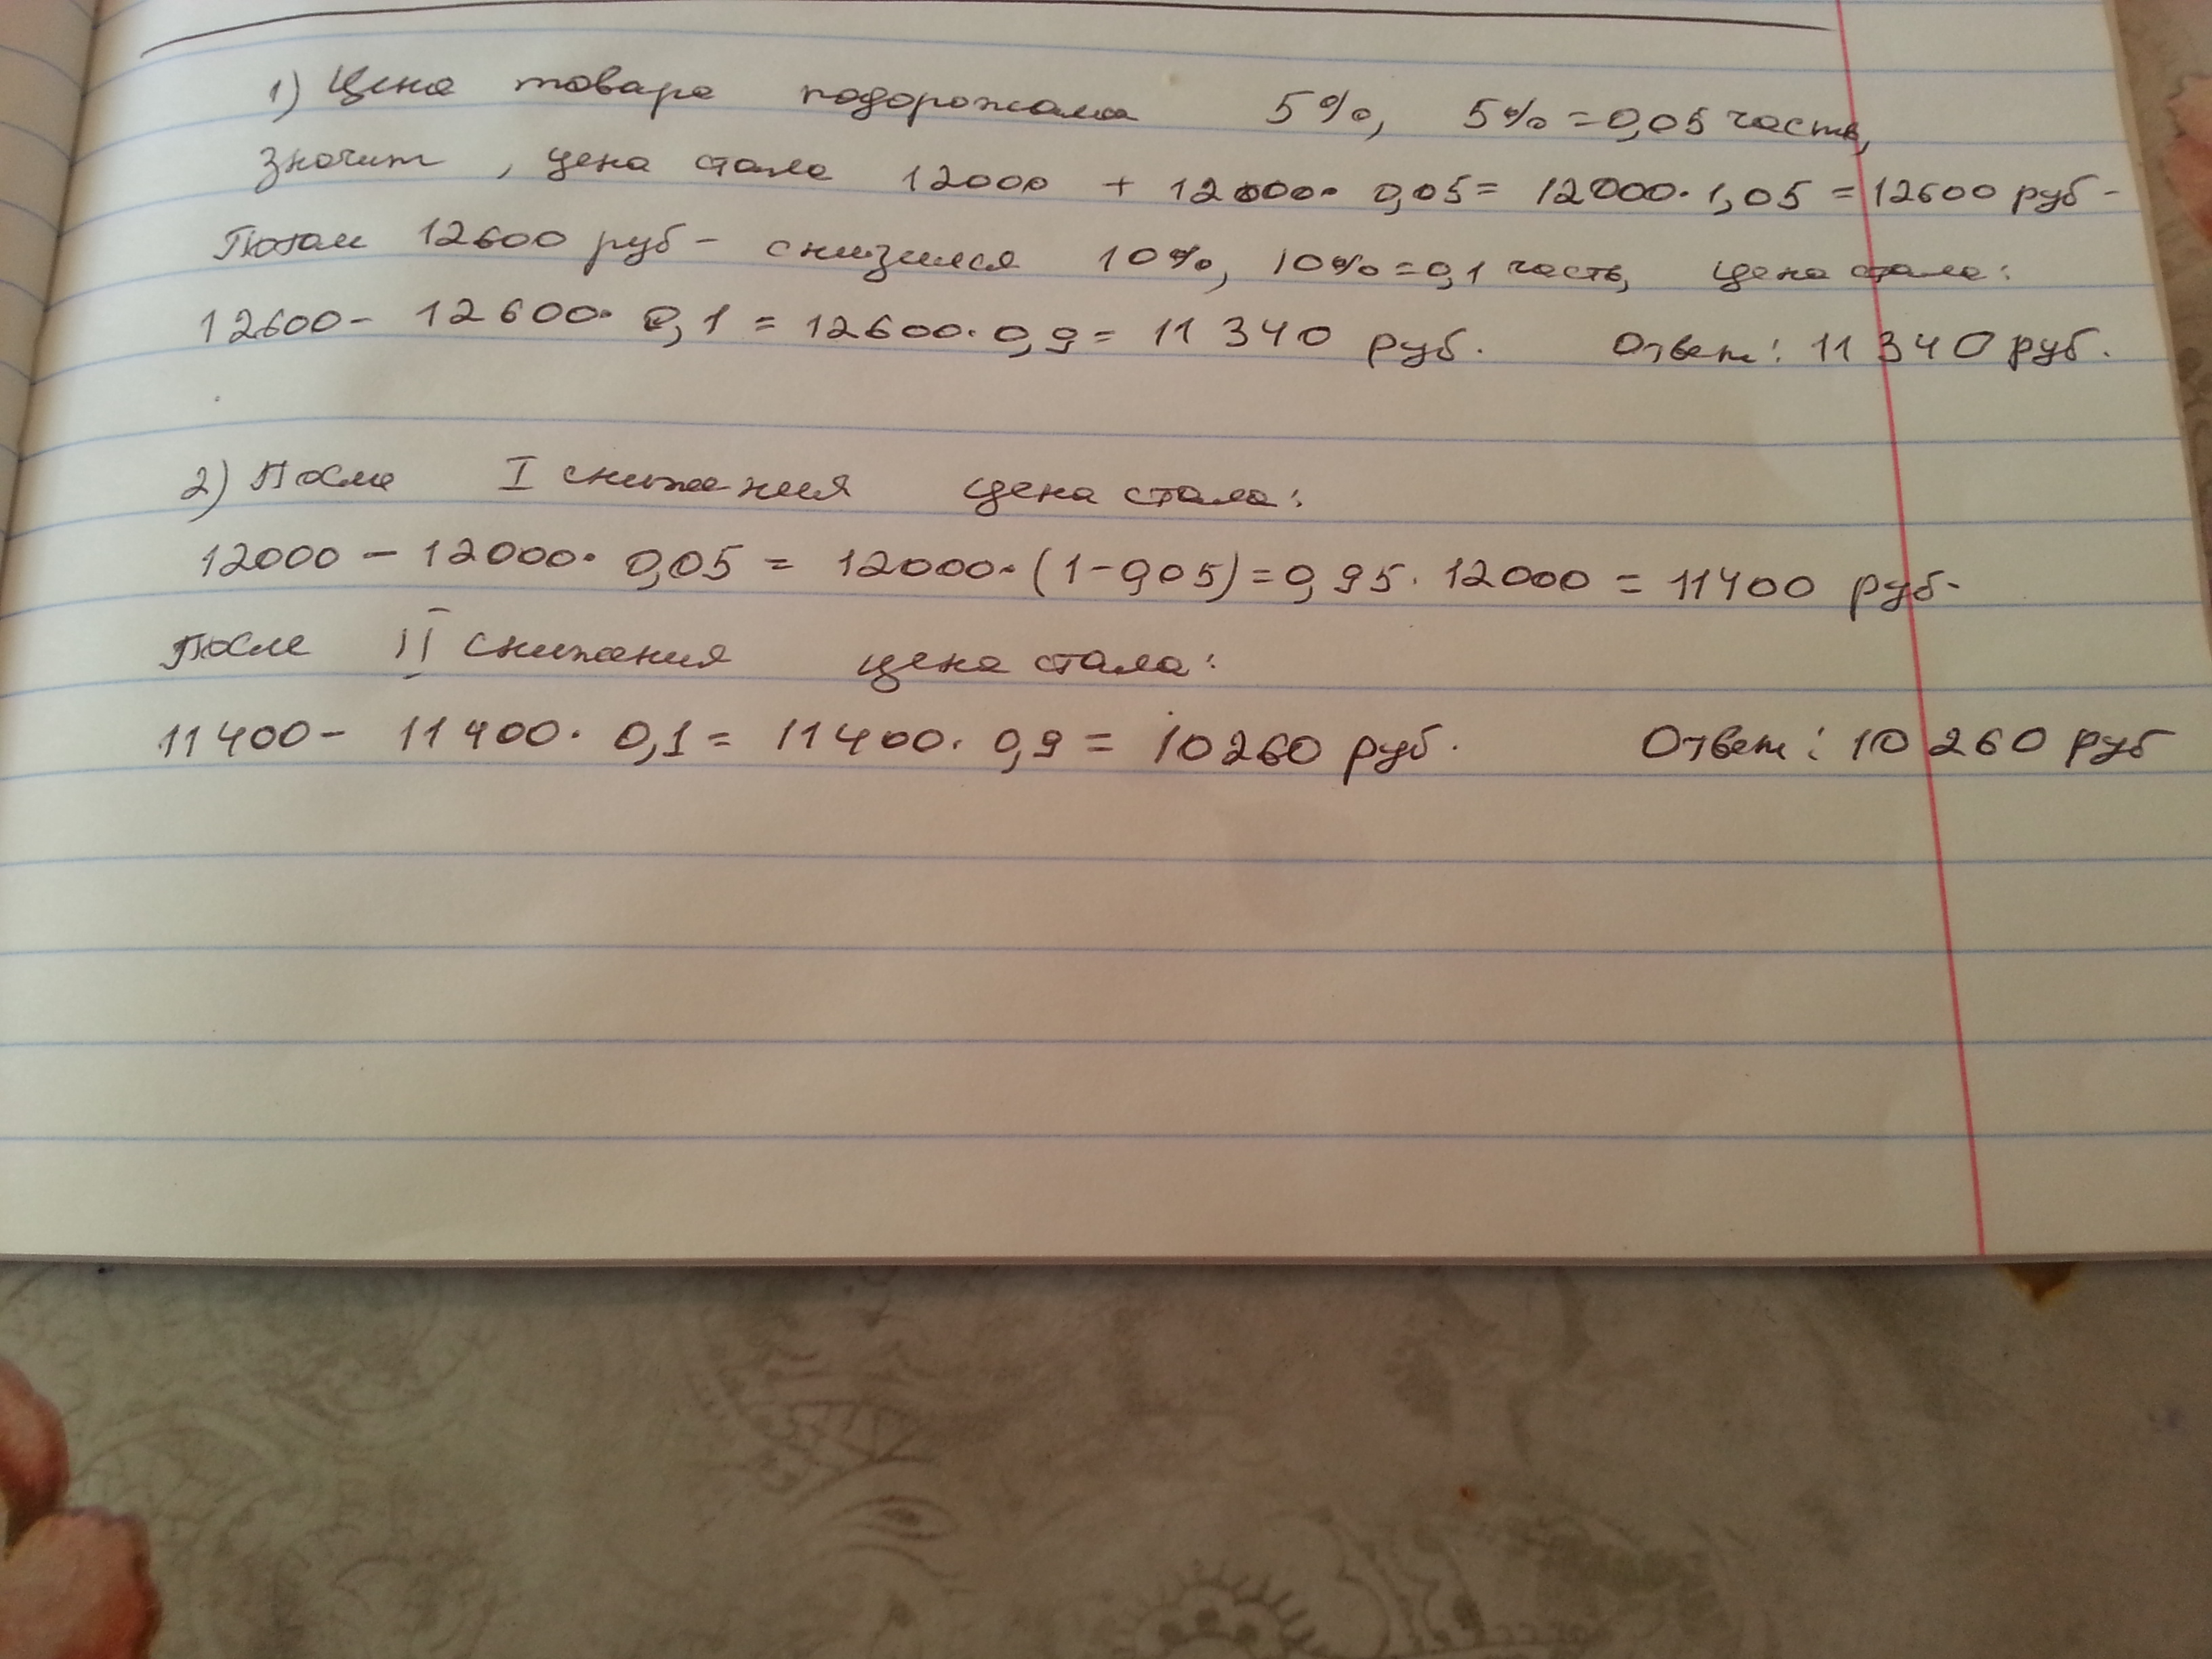 1) Цена товара подорожала 5%, 5% = 0,05 часть,
значит, цена стала 12000 + 12000· 0,05 = 12000·1,05 = 12600 руб-
Потом 12600 руб- снизился 10%, 10% = 0,1 часть, цена стала:
12600- 12600· 0,1 = 12600· 0,9 = 11 340 руб. Ответ: 11 340 руб.
2) После I снижения цена стала:
12000 - 12000· 0,05 = 12000·(1-0,05) = 0,95· 12000 = 11400 руб-
После II снижания цена стала:
11400- 11400· 0,1 = 11400· 0,9 = 10260 руб. Ответ: 10 260 руб